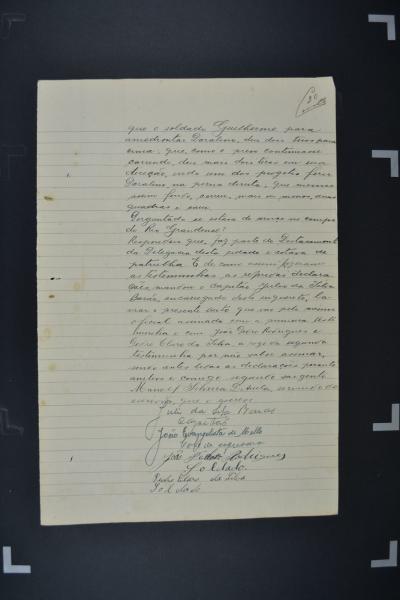 que o soldado Guilherme para
amedrontar Doralino, deu dois tiros para
cima; que, como o preso continuasse
correndo, deu mais dois tiros em sua
direção, indo um dos projetis ferir
Doralino na perna direita; que mesmo
assim ferido, correu, mais ou menos, duas
quadras e
Perguntado se estava de serviço no campo
do Rio Grandense?
Respondeu que, faz parte do Destacamento
da Delegacia desta cidade e estava de
patrulha. E de como assim
as testemunhas, as referidas declara-
ções mandou o capitão Julio da Silva
encarregado deste inquerito, la-
vrar o presente auto que vai pelo mesmo
oficial assinado com a primeira teste-
munha e com João Rodrigues e
Pedro Claro da Silva, a rogo da segunda
testemunha por não saber assinar,
sendo antes lidas as declarações perante
ambos e comigo segundo sargento
Manoel servindo de
escrivão, que o
Julio da Silva
Capitão
João Evangelista de Mello
João Rodrigues
Soldado
Pedro Claro da Silva
Soldado